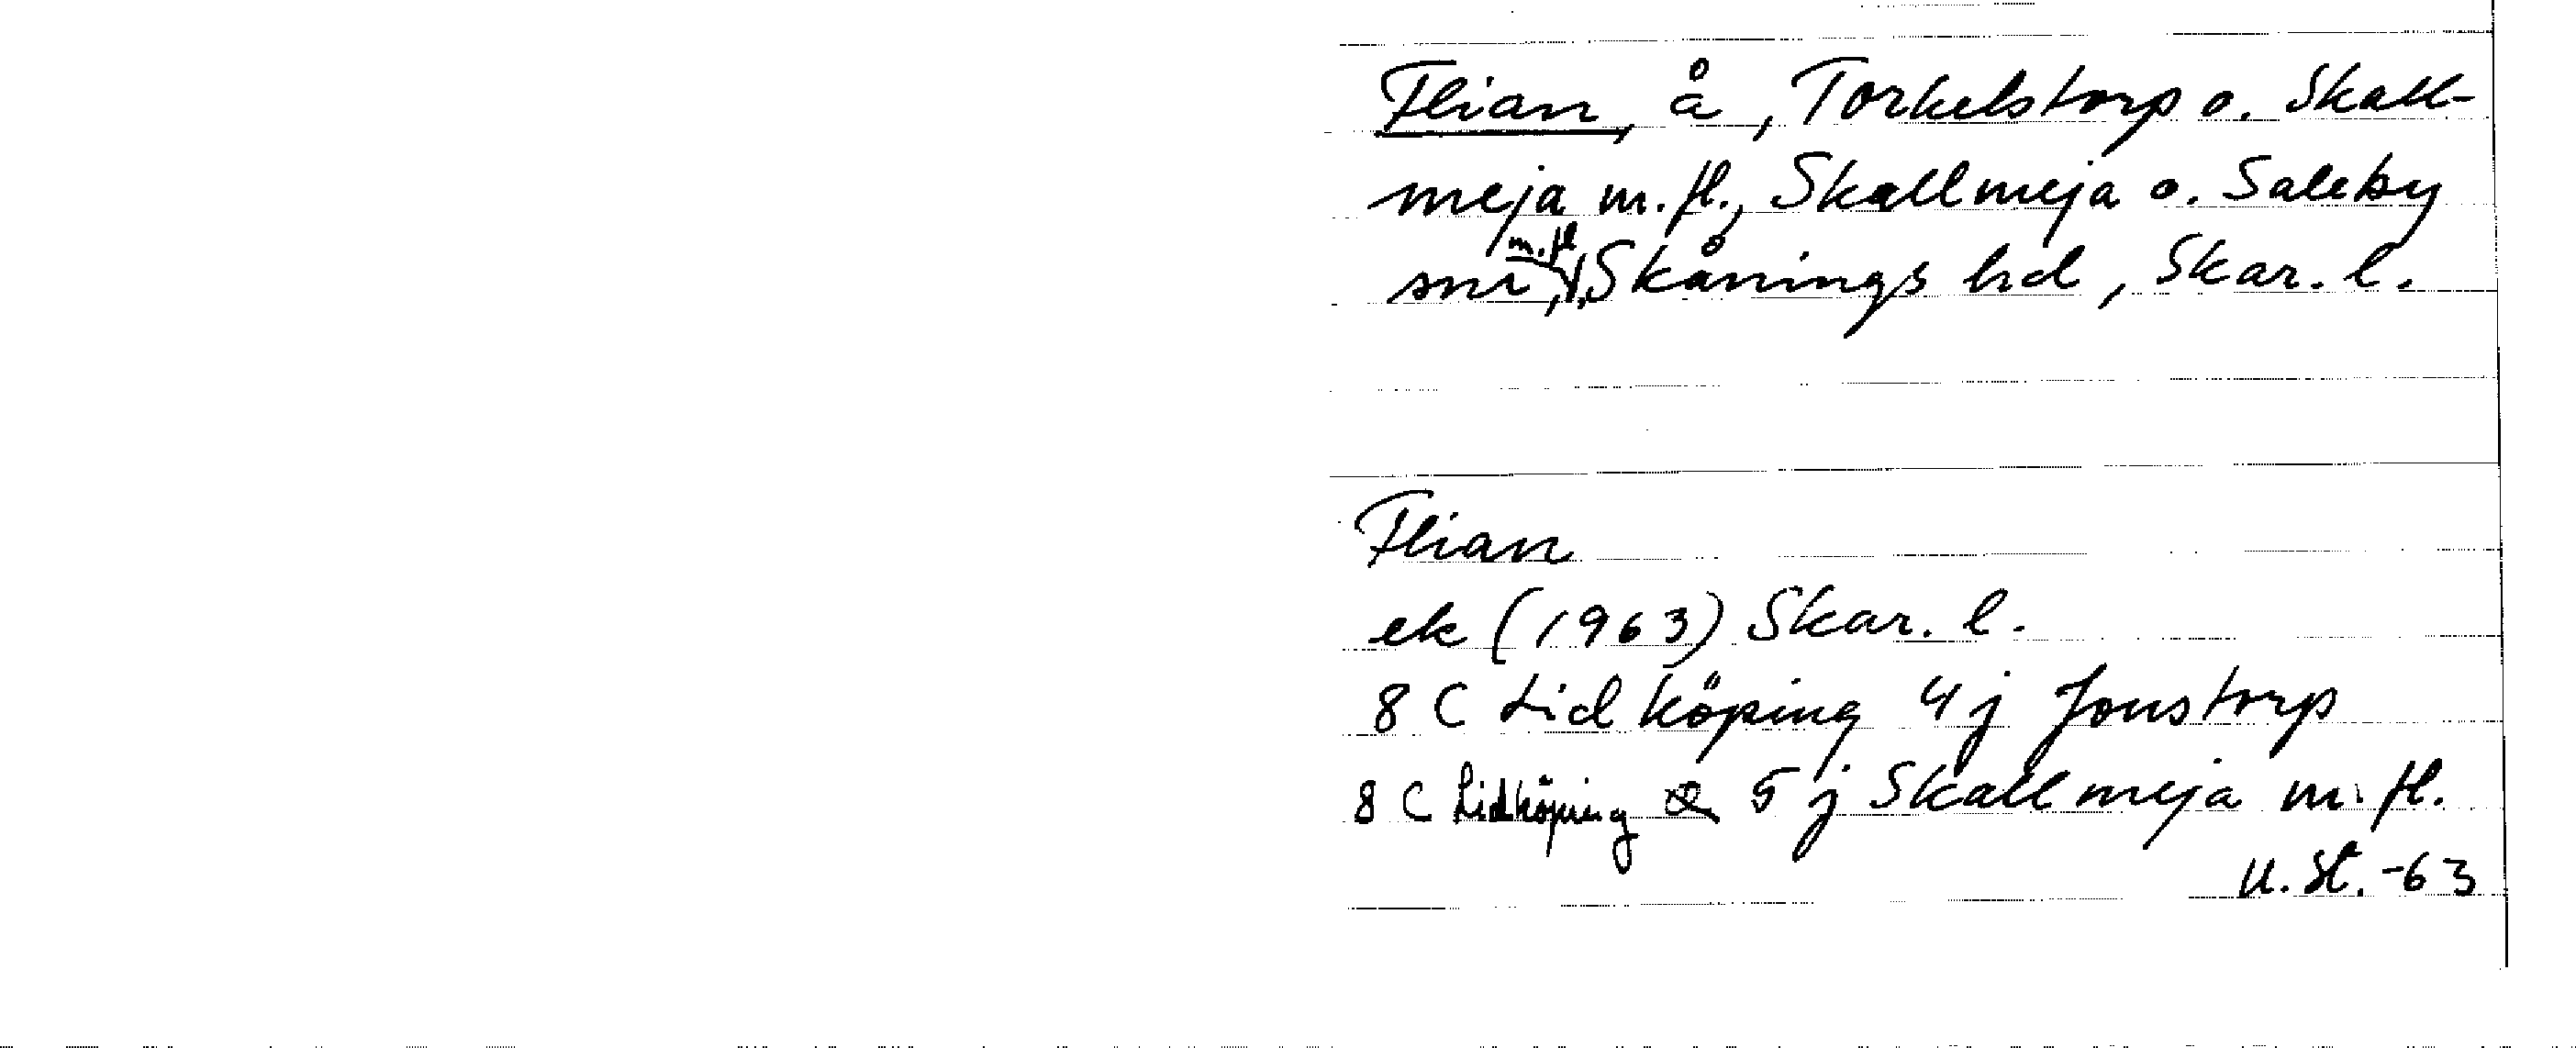 Flian, å, Torkelstorp o. Skall-
meja m.fl., Skallmeja o. Saleby
snr, m.fl, Skånings hd, Skar. l.
Flian
ek (1963) Skar. l.
8 C Lidköping 4j Jonstorp
8 C Lidköping 5j Skallmeja m.fl.
U. St. -63